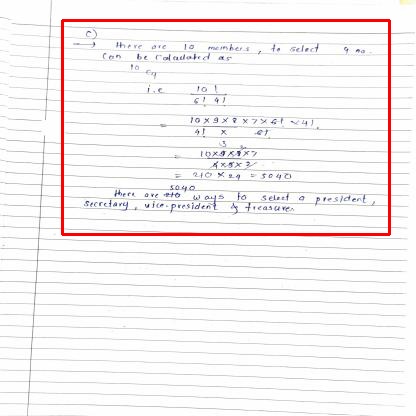 c)
→ there are 10 members, to select 4 no.
Can be Calculated as
10 C4
i.e 10! / 6! 4!
= 10×9×8×7×6! × 4! / 4! × 6!
3 2
= 10×9×8×7 / 4×3×2
= 210 × 24 = 5040
5040
there are 210 ways to select a president,
secretary, vice-president & treasurer